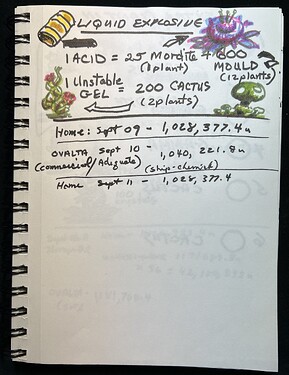 LIQUID EXPLOSIVE
1 ACID = 25 Mordite + 600
(1 plant) MOULD
(12 plants)
1 Unstable
GEL = 200 CACTUS
(2 plants)
Home: Sept 09 - 1,028,377.4u
OVALTA Sept 10 - 1,040,221.8u
(commercial/Adequate) (ship-chemist)
Home Sept 11 - 1,028,377.4